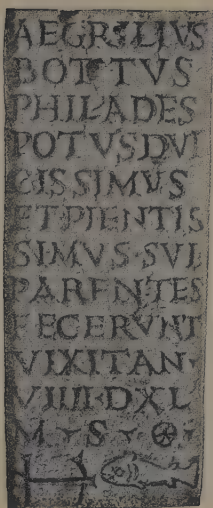 AEGRILIVS
BOTTVS
PHILADES
POTVSDVI
CISSIMVS
ET·PIENTIS
SIMVS·SVI
PARENTES
FECERVNT
VIXITAN·
VIIII·DXL
M S